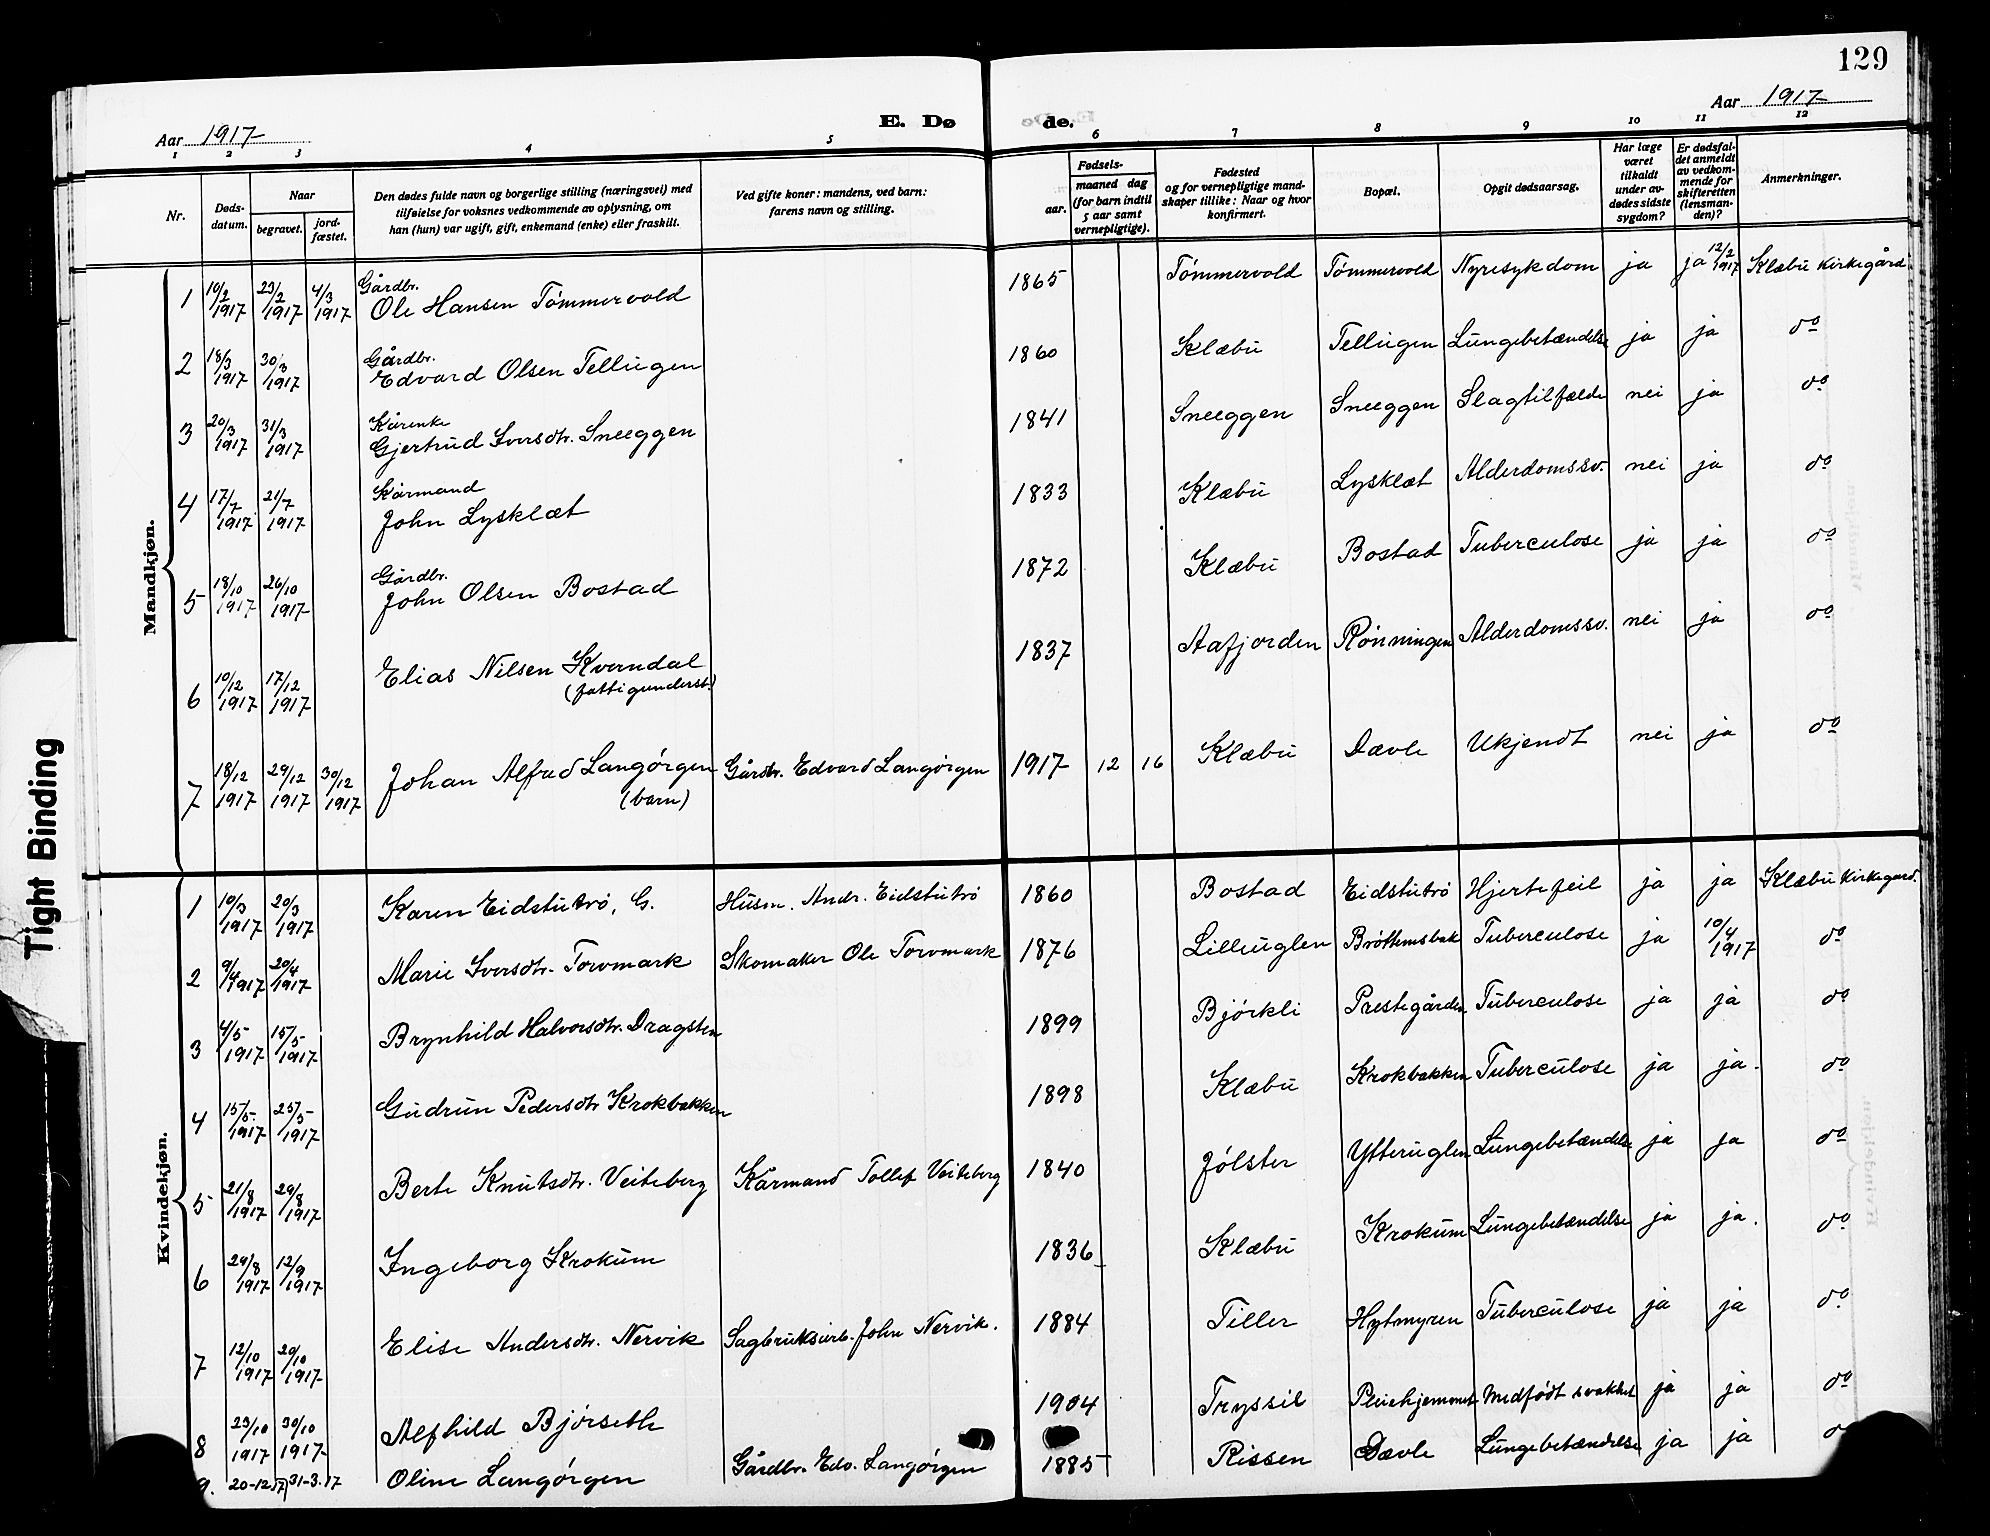 129
Aar 1917
E. Dø de.
Aar 1917
1 2 3 4 5 6 7 8 9 10 11 12
Nr.
Døds-
datum.
Naar
begravet.
jord-
fæstet.
Den dødes fulde navn og borgerlige stilling (næringsvei) med
tilføielse for voksnes vedkommende av oplysning, om
han (hun) var ugift, gift, enkemand (enke) eller fraskilt.
Ved gifte koner: mandens, ved barn:
farens navn og stilling.
Fødsels-
aar.
maaned dag
(for barn indtil
5 aar samt
vernepligtige).
Fødested
og for vernepligtige mand-
skaper tillike: Naar og hvor
konfirmert.
Bopæl.
Opgit dødsaarsag.
Har læge
været
tilkaldt
under av-
dødes sidste
sygdom?
Er dødsfal-
det anmeldt
av vedkom-
mende for
skifteretten
(lensman-
den)?
Anmerkninger.
Mandkjøn.
1 10/2 1917 23/2 1917 4/3 1917 Gårdbr. Ole Hansen Tømmervold 1865 Tømmervold Tømmervold Nyresykdom ja ja 12/2 1917 Klæbu Kirkegård
2 18/3 1917 30/3 1917 Gårdbr. Edvard Olsen Tellugen 1860 Klæbu Tellugen Lungebetændelse ja ja do
3 20/3 1917 31/3 1917 Kårenke Gjertrud Iversdtr. Sneeggen 1841 Sneeggen Sneeggen Slagtilfælde nei ja do
4 17/7 1917 21/7 1917 Kårmand John Lysklæt 1833 Klæbu Lysklæt Alderdomssv. nei ja do
5 18/10 1917 26/10 1917 Gårdbr. John Olsen Bostad 1872 Klæbu Bostad Tuberculose ja ja do
6 10/12 1917 17/12 1917 Elias Nilsen Kverndal (fattigunderst.) 1837 Aafjorden Rønningen Alderdomssv. nei ja do
7 18/12 1917 29/12 1917 30/12 1917 Johan Alfred Langørgen (barn) Gårdbr. Edvard Langørgen 1917 12 16 Klæbu Dævle Ukjendt nei ja do
Kvindekjøn.
1 10/3 1917 20/3 1917 Karen Eidstutrø, G. Husm. Andr. Eidstutrø 1860 Bostad Eidstutrø Hjertefeil ja ja Klæbu Kirkegård.
2 9/4 1917 20/4 1917 Marie Iversdtr. Torvmark Skomaker Ole Torvmark 1876 Lilleuglen Brøttemsbak Tuberculose ja 10/4 1917 do
3 4/5 1917 15/5 1917 Brynhild Halvorsdtr. Dragsten 1899 Bjørkli Prestegården Tuberculose ja ja do
4 15/5 1917 25/5 1917 Gudrun Pedersdtr Krokbakken 1898 Klæbu Krokbakken Tuberculose ja ja. do
5 21/8 1917 29/8 1917 Berte Knutsdtr. Veiteberg Kårmand Tollef Veiteberg 1840 Jølster Ytteruglen Lungebetændelse ja ja do
6 29/8 1917 12/9 1917 Ingeborg Krokum 1836 Klæbu Krokum Lungebetændelse ja ja. do
7 12/10 1917 20/10 1917 Elise Andersdtr. Nervik Sagbruksarb. John Nervik. 1884 Tiller Hytmyren Tuberculose ja ja do
8 23/10 1917 30/10 1917 Alfhild Bjørseth 1904 Tryssil Pleiehjemmet Medfødt svakhet ja ja do
9. 20-12 17 31-3.17 Oline Langørgen Gårdbr. Edv. Langørgen 1885 Rissen Dævle Lungebetændelse ja ja
Tight Binding